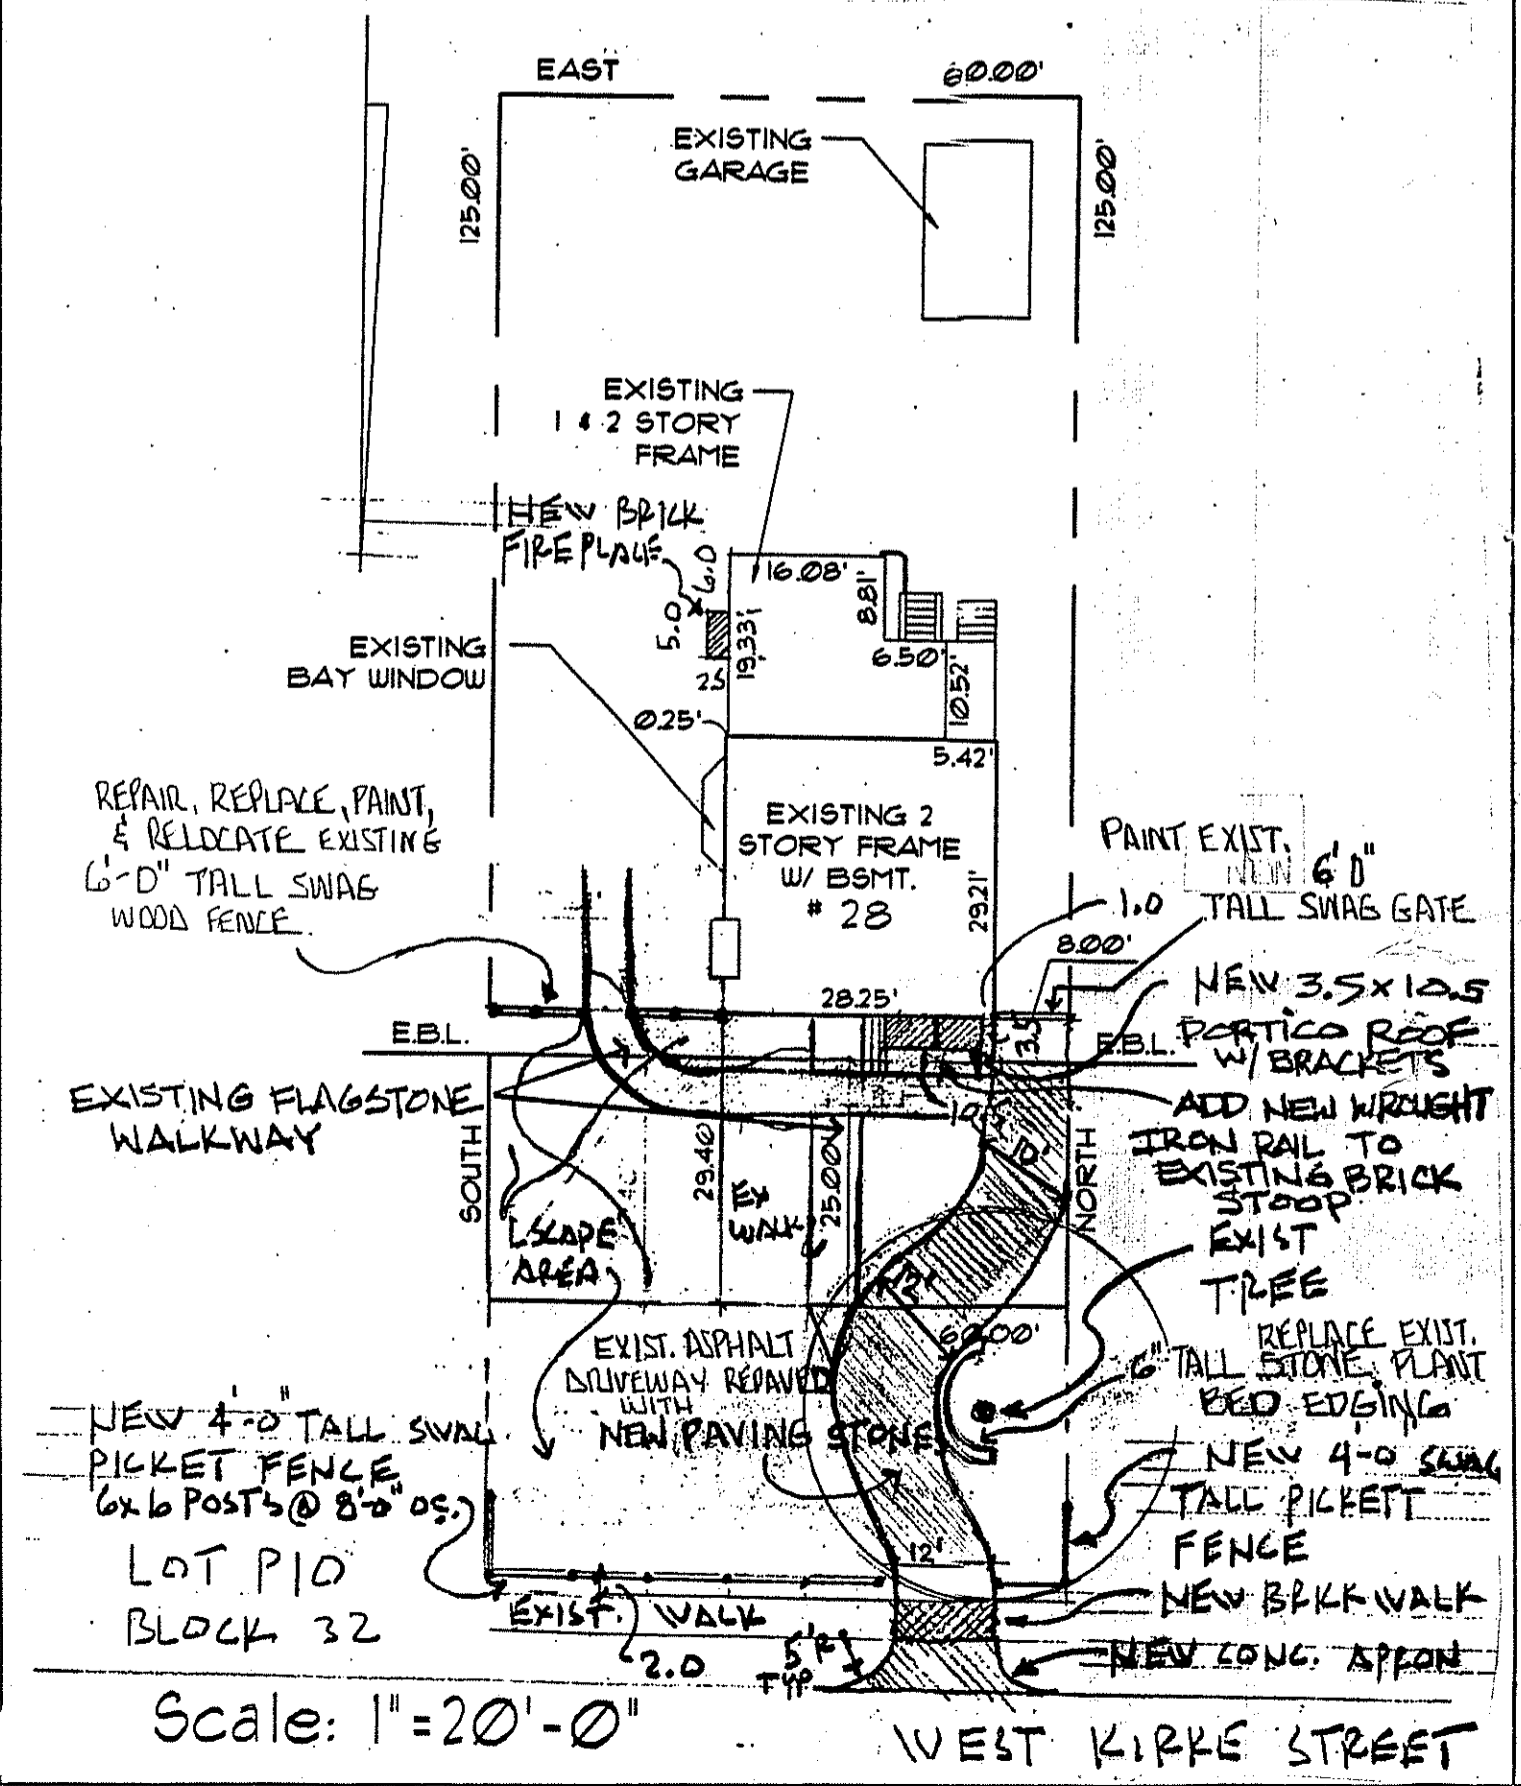 EAST
60.00'
EXISTING
GARAGE
125.00'
125.00'
EXISTING
1 & 2 STORY
FRAME
NEW BRICK
FIREPLACE
6.0
16.08'
8.81'
5.0
19.33'
6.50'
EXISTING
BAY WINDOW
25
10.52'
0.25'
5.42'
REPAIR, REPLACE, PAINT,
& RELOCATE EXISTING
6'-0" TALL SWAG
WOOD FENCE.
EXISTING 2
STORY FRAME
W/ BSMT.
# 28
29.21'
PAINT EXIST.
NEW 6'0"
TALL SWAG GATE
1.0
8.00'
28.25'
NEW 3.5 x 10.5
PORTICO ROOF
W/ BRACKETS
3.5
E.B.L.
E.B.L.
EXISTING FLAGSTONE
WALKWAY
ADD NEW WROUGHT
IRON RAIL TO
EXISTING BRICK
STOOP
10'
SOUTH
29.40
25.00'
NORTH
EX
WALK
L'SCAPE
AREA
12'
EXIST
TREE
60.00'
EXIST. ASPHALT
DRIVEWAY REPAVED
WITH
NEW PAVING STONES
REPLACE EXIST.
6" TALL STONE PLANT
BED EDGING
NEW 4'-0" TALL SWAG
PICKET FENCE
6x6 POSTS @ 8'-0" OS.
NEW 4-0 SWAG
TALL PICKETT
FENCE
12'
LOT P10
BLOCK 32
EXIST. WALK
NEW BRICK WALK
2.0
5'R
TYP
NEW CONC. APRON
Scale: 1"=20'-0"
WEST KIRKE STREET